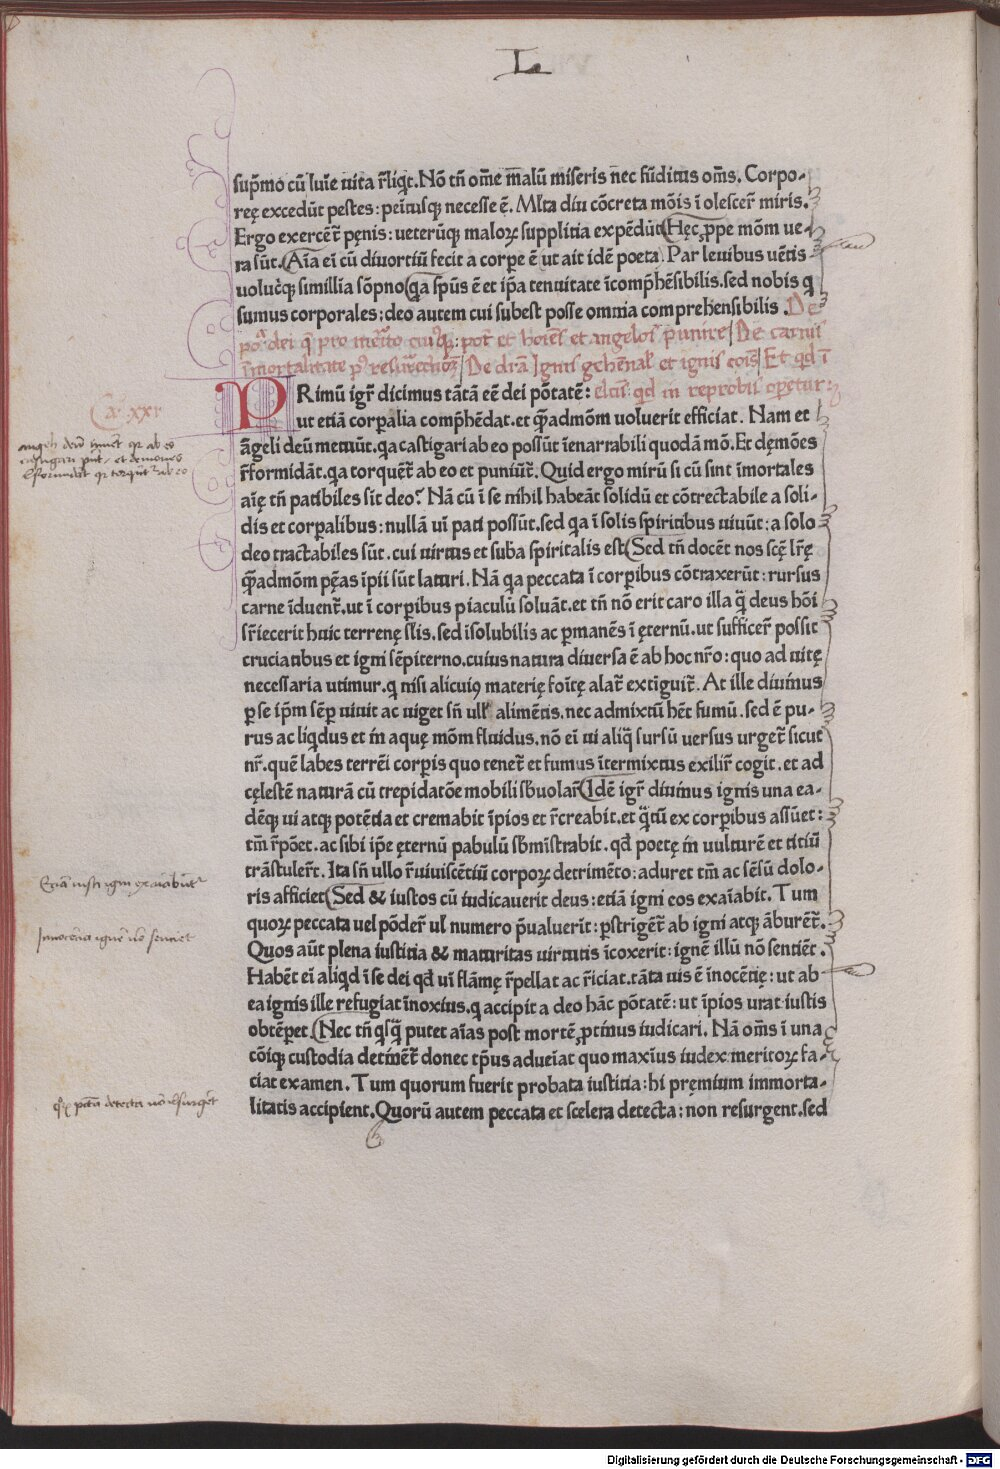 L
sup̄mo cū luīe uita r̄liq̄t. Nō tn̄ om̄e m̄alū miseris nec fūditus om̄s. Corpo-
reę excedūt pestes: peītusq; necesse ē. Mlta diu cōcreta mōis ī olescer̄ miris.
Ergo exercēt̄ pęnis: ueterūq; maloꝝ supplitia expēdūt Hęc ꝓppe mōm ue-
ra sūt. Aīa eī cū diuortiū fecit a corpe ē ut ait idē poeta. Par leuibus uētis
uolucīq; simillia sōpno qa spūs ē et ip̄a tenuitate īcomp̄hēsibilis. sed nobis q
sumus corporales: deo autem cui subest posse omnia comprehensibilis. De
potᵃ dei q̄ pro merito cuiusq;: pot̄ et hoīes et angelos punire De carnis
īmortalitate pꝰ resurrectionē De dr̄a Ignis gehēnal̄ et ignis cōis Et qd ī
PRimū igr̄ dicimus tātā eē dei pōtatē: electis qd in reprobis operetur:
Ca xxi
ut etiā corpalia comp̄hēdat. et q̄admōm uoluerit efficiat. Nam et
āgeli deū metuūt. qa castigari ab eo possūt īenarrabili quodā mō. Et dęmōes
r̄formidāt. qa torquēt̄ ab eo et puniūt̄. Quid ergo mirū si cū sint īmortales
aīę tn̄ patibiles sīt deo? Nā cū ī se nihil habeāt solidū et cōtrectabile a soli-
dis et corpalibus: nullā uī pati possūt. sed qa ī solis spiritibus uiuūt: a solo
deo tractabiles sūt. cui uirtus et suba spiritalis est Sed tn̄ docēt nos scę̄ lr̄ę
q̄admōm pęas īpii sūt laturi. Nā qa peccata ī corpibus cōtraxerūt: rursus
carne īduent̄. ut ī corpibus piaculū soluāt. et tn̄ nō erit caro illa q̄ deus hōi
sr̄iecerit huic terrenę sl̄is. sed īsolubilis ac pmanēs ī ęternū. ut sufficer̄ possit
cruciatibus et igni sēpiterno. cuius natura diuersa ē ab hoc nr̄o: quo ad uitę
necessaria utimur. q nisi alicuiꝰ materię foītę alat̄ extiguit̄. At ille diuinus
p se ip̄m sēp uiuit ac uiget sn̄ ull' alimētis. nec admixtū hēt fumū. sed ē pu-
rus ac liqdus et in aquę mōm fluidus. nō eī ui aliq̄ sursū uersus urget̄ sicut
nr̄. quē labes terrēi corpis quo tenet̄ et fumus ītermixtus exilir̄ cogit. et ad
cęlestē naturā cū trepidatōe mobili sb̄uolar̄ Idē igr̄ diuinus ignis una ea-
dēq; ui atq; potētia et cremabit īpios et r̄creabit. et q̄tū ex corpibus assūet:
tm̄ r̄pōet. ac sibi ip̄e ęternū pabulū sb̄mīstrabit. qd̄ poetę in uulturē et titiū
trāstuler̄t. Ita sn̄ ullo r̄uiuiscētiū corpoꝝ detrimēto: aduret tm̄ ac sēsū dolo-
ris afficiet Sed & iustos cū iudicauerit deus: etiā igni eos exaīabit. Tum
quoꝝ peccata uel pōder̄ ul numero p̄ualuerit: pstrigēt̄ ab igni atq; āburēt̄.
Quos aūt plena iustitia & maturitas uirtutis īcoxerit: ignē illū nō sentiēt.
Habēt eī aliqd ī se dei qd̄ uī flāmę r̄pellat ac r̄iciat. tāta uis ē īnocētię: ut ab
ea ignis ille refugiat īnoxius. q accipit a deo hāc pōtatē: ut īpios urat iustis
obtēpet. Nec tn̄ qsq̄ putet aīas post mortē ꝓtinus iudicari. Nā om̄s ī una
cōiq; custodia detinēt̄ donec tp̄us adueīat quo maxīus iudex meritoꝝ fa-
ciat examen. Tum quorum fuerit probata iustitia: hi pręmium immorta-
litatis accipient. Quorū autem peccata et scelera detecta: non resurgent. sed
angeli deū timēt qr ab eo
castigari pn̄t. et demones
r̄formidāt qr torquēt̄ ab eo
Etiā iusti igni exaīabūt̄
Innocentia ignē nō sentiet
qꝝ pctā detecta nō resurgēt
Digitalisierung gefördert durch die Deutsche Forschungsgemeinschaft - DFG